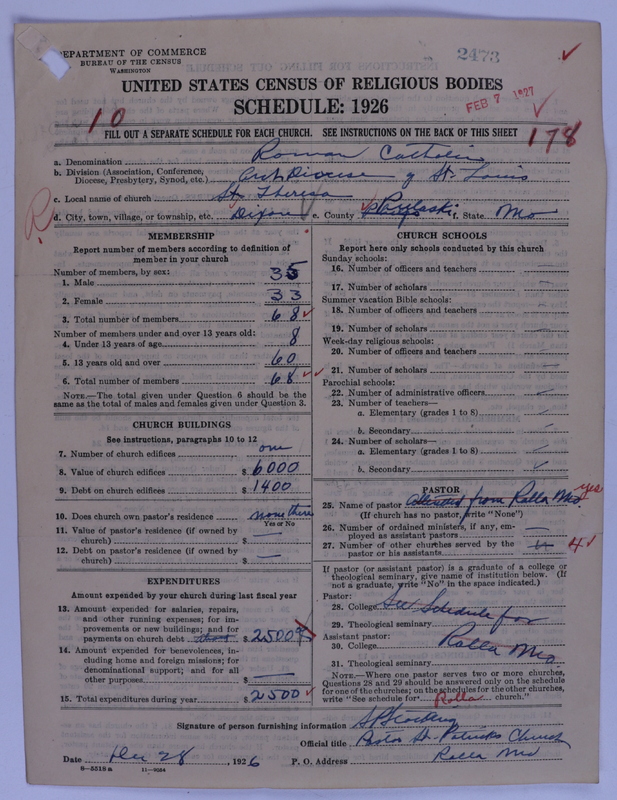 DEPARTMENT OF COMMERCE
BUREAU OF THE CENSUS
WASHINGTON
2473
UNITED STATES CENSUS OF RELIGIOUS BODIES
SCHEDULE: 1926
FEB 7 1927
10
FILL OUT A SEPARATE SCHEDULE FOR EACH CHURCH. SEE INSTRUCTIONS ON THE BACK OF THIS SHEET
178
a. Denomination Roman Catholic
b. Division (Association, Conference, Diocese, Presbytery, Synod, etc.) ArchDiocese of St. Louis
c. Local name of church St. Theresa
d. City, town, village, or township, etc. Dixon e. County Pulaski f. State Mo
MEMBERSHIP
Report number of members according to definition of
member in your church
Number of members, by sex:
1. Male 35
2. Female 33
3. Total number of members 68
Number of members under and over 13 years old:
4. Under 13 years of age 8
5. 13 years old and over 60
6. Total number of members 68
NOTE.—The total given under Question 6 should be
same as the total of males and females given under Question 3.
CHURCH BUILDINGS
See instructions, paragraphs 10 to 12
7. Number of church edifices one
8. Value of church edifices $ 6000
9. Debt on church edifices $ 1400
10. Does church own pastor's residence none there
Yes or No
11. Value of pastor's residence (if owned by
church) $ —
12. Debt on pastor's residence (if owned by
church) $ —
EXPENDITURES
Amount expended by your church during last fiscal year
13. Amount expended for salaries, repairs,
and other running expenses; for im-
provements or new buildings; and for
payments on church debt $ 2500
14. Amount expended for benevolences, in-
cluding home and foreign missions; for
denominational support; and for all
other purposes $ —
15. Total expenditures during year $ 2500
CHURCH SCHOOLS
Report here only schools conducted by this church
Sunday schools:
16. Number of officers and teachers —
17. Number of scholars —
Summer vacation Bible schools:
18. Number of officers and teachers —
19. Number of scholars —
Week-day religious schools:
20. Number of officers and teachers —
21. Number of scholars —
Parochial schools:
22. Number of administrative officers
23. Number of teachers—
a. Elementary (grades 1 to 8)
b. Secondary
24. Number of scholars—
a. Elementary (grades 1 to 8)
b. Secondary
PASTOR
25. Name of pastor attended from Rolla Mo. yes
(If church has no pastor, write "None")
26. Number of ordained ministers, if any, em-
ployed as assistant pastors —
27. Number of other churches served by the
pastor or his assistants 4
If pastor (or assistant pastor) is a graduate of a college or
theological seminary, give name of institution below. (If
not a graduate, write "No" in the space indicated.)
Pastor:
28. College See Schedule for
29. Theological seminary
Assistant pastor:
30. College Rolla Mo
31. Theological seminary
NOTE.—Where one pastor serves two or more churches,
Questions 28 and 29 should be answered only on the schedule
for one of the churches; on the schedules for the other churches,
write "See schedule for Rolla church."
Signature of person furnishing information
Official title Pastor St. Patricks Church
Date Dec 28, 1926 P. O. Address Rolla Mo
8—5518a 11—9084